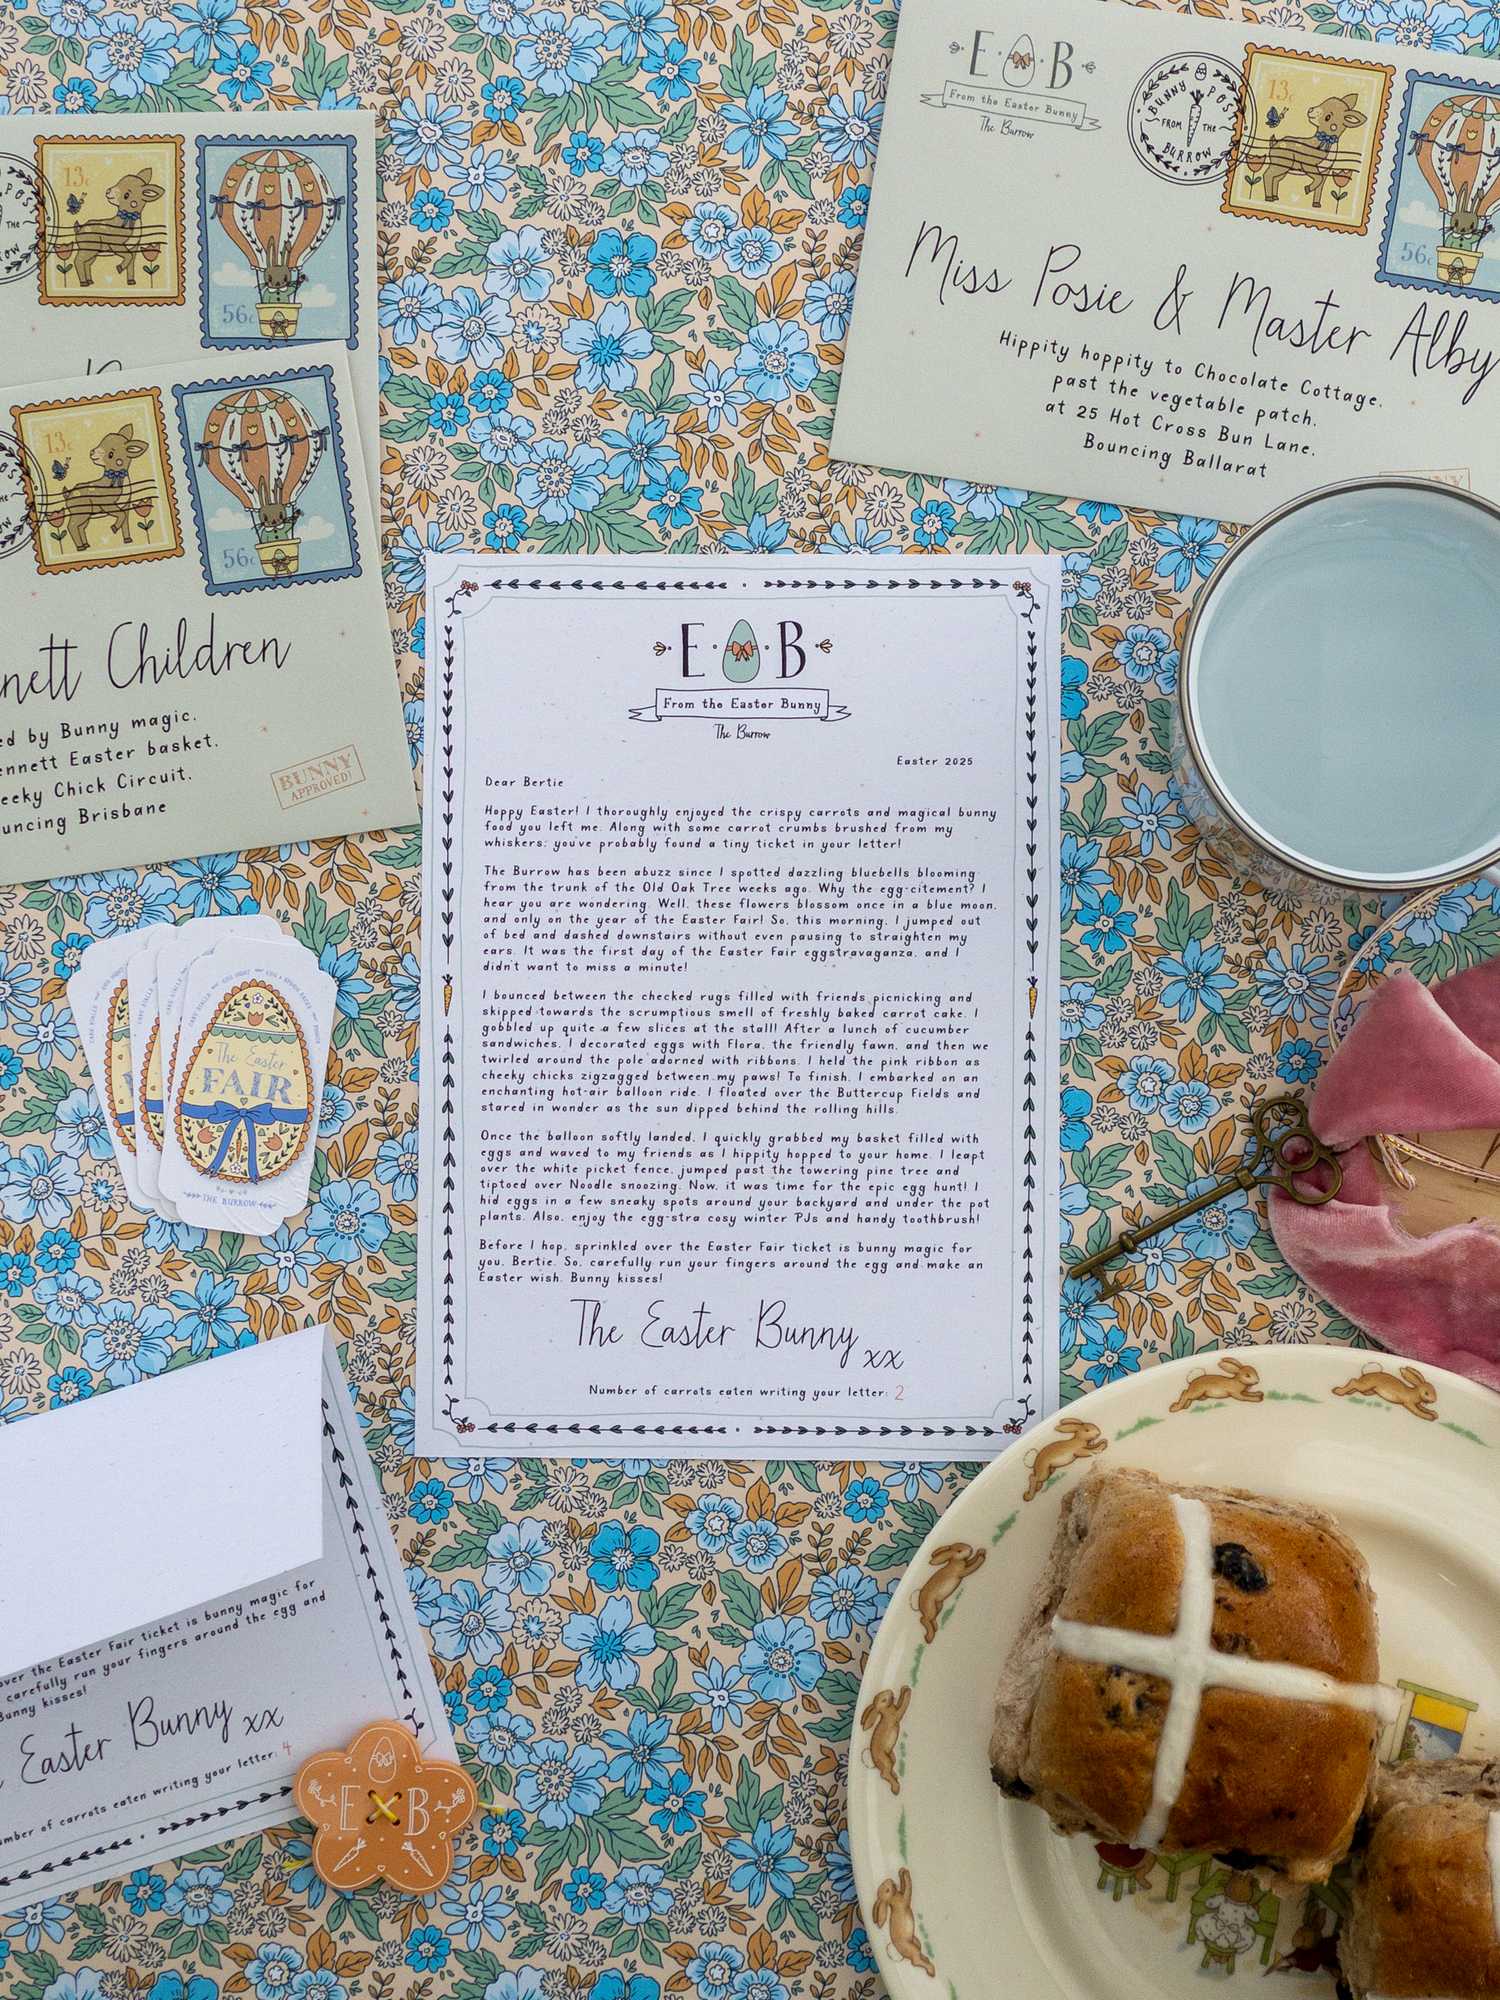 E B
From the Easter Bunny
The Burrow
BUNNY POST
FROM THE
BURROW
13c
56c
Miss Posie & Master Alby
Hippity hoppity to Chocolate Cottage,
past the vegetable patch,
at 25 Hot Cross Bun Lane,
Bouncing Ballarat
13c
56c
POST
THE
13c
56c
Children
by Bunny magic,
Easter basket,
Chick Circuit,
Brisbane
BUNNY
APPROVED!
E B
From the Easter Bunny
The Burrow
Easter 2025
Dear Bertie
Hoppy Easter! I thoroughly enjoyed the crispy carrots and magical bunny
food you left me. Along with some carrot crumbs brushed from my
whiskers; you've probably found a tiny ticket in your letter!
The Burrow has been abuzz since I spotted dazzling bluebells blooming
from the trunk of the Old Oak Tree weeks ago. Why the egg-citement? I
hear you are wondering. Well, these flowers blossom once in a blue moon,
and only on the year of the Easter Fair! So, this morning, I jumped out
of bed and dashed downstairs without even pausing to straighten my
ears. It was the first day of the Easter Fair eggstravaganza, and I
didn't want to miss a minute!
I bounced between the checked rugs filled with friends picnicking and
skipped towards the scrumptious smell of freshly baked carrot cake. I
gobbled up quite a few slices at the stall! After a lunch of cucumber
sandwiches, I decorated eggs with Flora, the friendly fawn, and then we
twirled around the pole adorned with ribbons. I held the pink ribbon as
cheeky chicks zigzagged between my paws! To finish, I embarked on an
enchanting hot-air balloon ride. I floated over the Buttercup Fields and
stared in wonder as the sun dipped behind the rolling hills.
Once the balloon softly landed, I quickly grabbed my basket filled with
eggs and waved to my friends as I hippity hopped to your home. I leapt
over the white picket fence, jumped past the towering pine tree and
tiptoed over Noodle snoozing. Now, it was time for the epic egg hunt! I
hid eggs in a few sneaky spots around your backyard and under the pot
plants. Also, enjoy the egg-stra cosy winter PJs and handy toothbrush!
Before I hop, sprinkled over the Easter Fair ticket is bunny magic for
you, Bertie. So, carefully run your fingers around the egg and make an
Easter wish. Bunny kisses!
The Easter Bunny xx
Number of carrots eaten writing your letter: 2
The Easter
FAIR
THE BURROW
over the Easter Fair ticket is bunny magic for
carefully run your fingers around the egg and
Bunny kisses!
Easter Bunny xx
of carrots eaten writing your letter: 4
E B